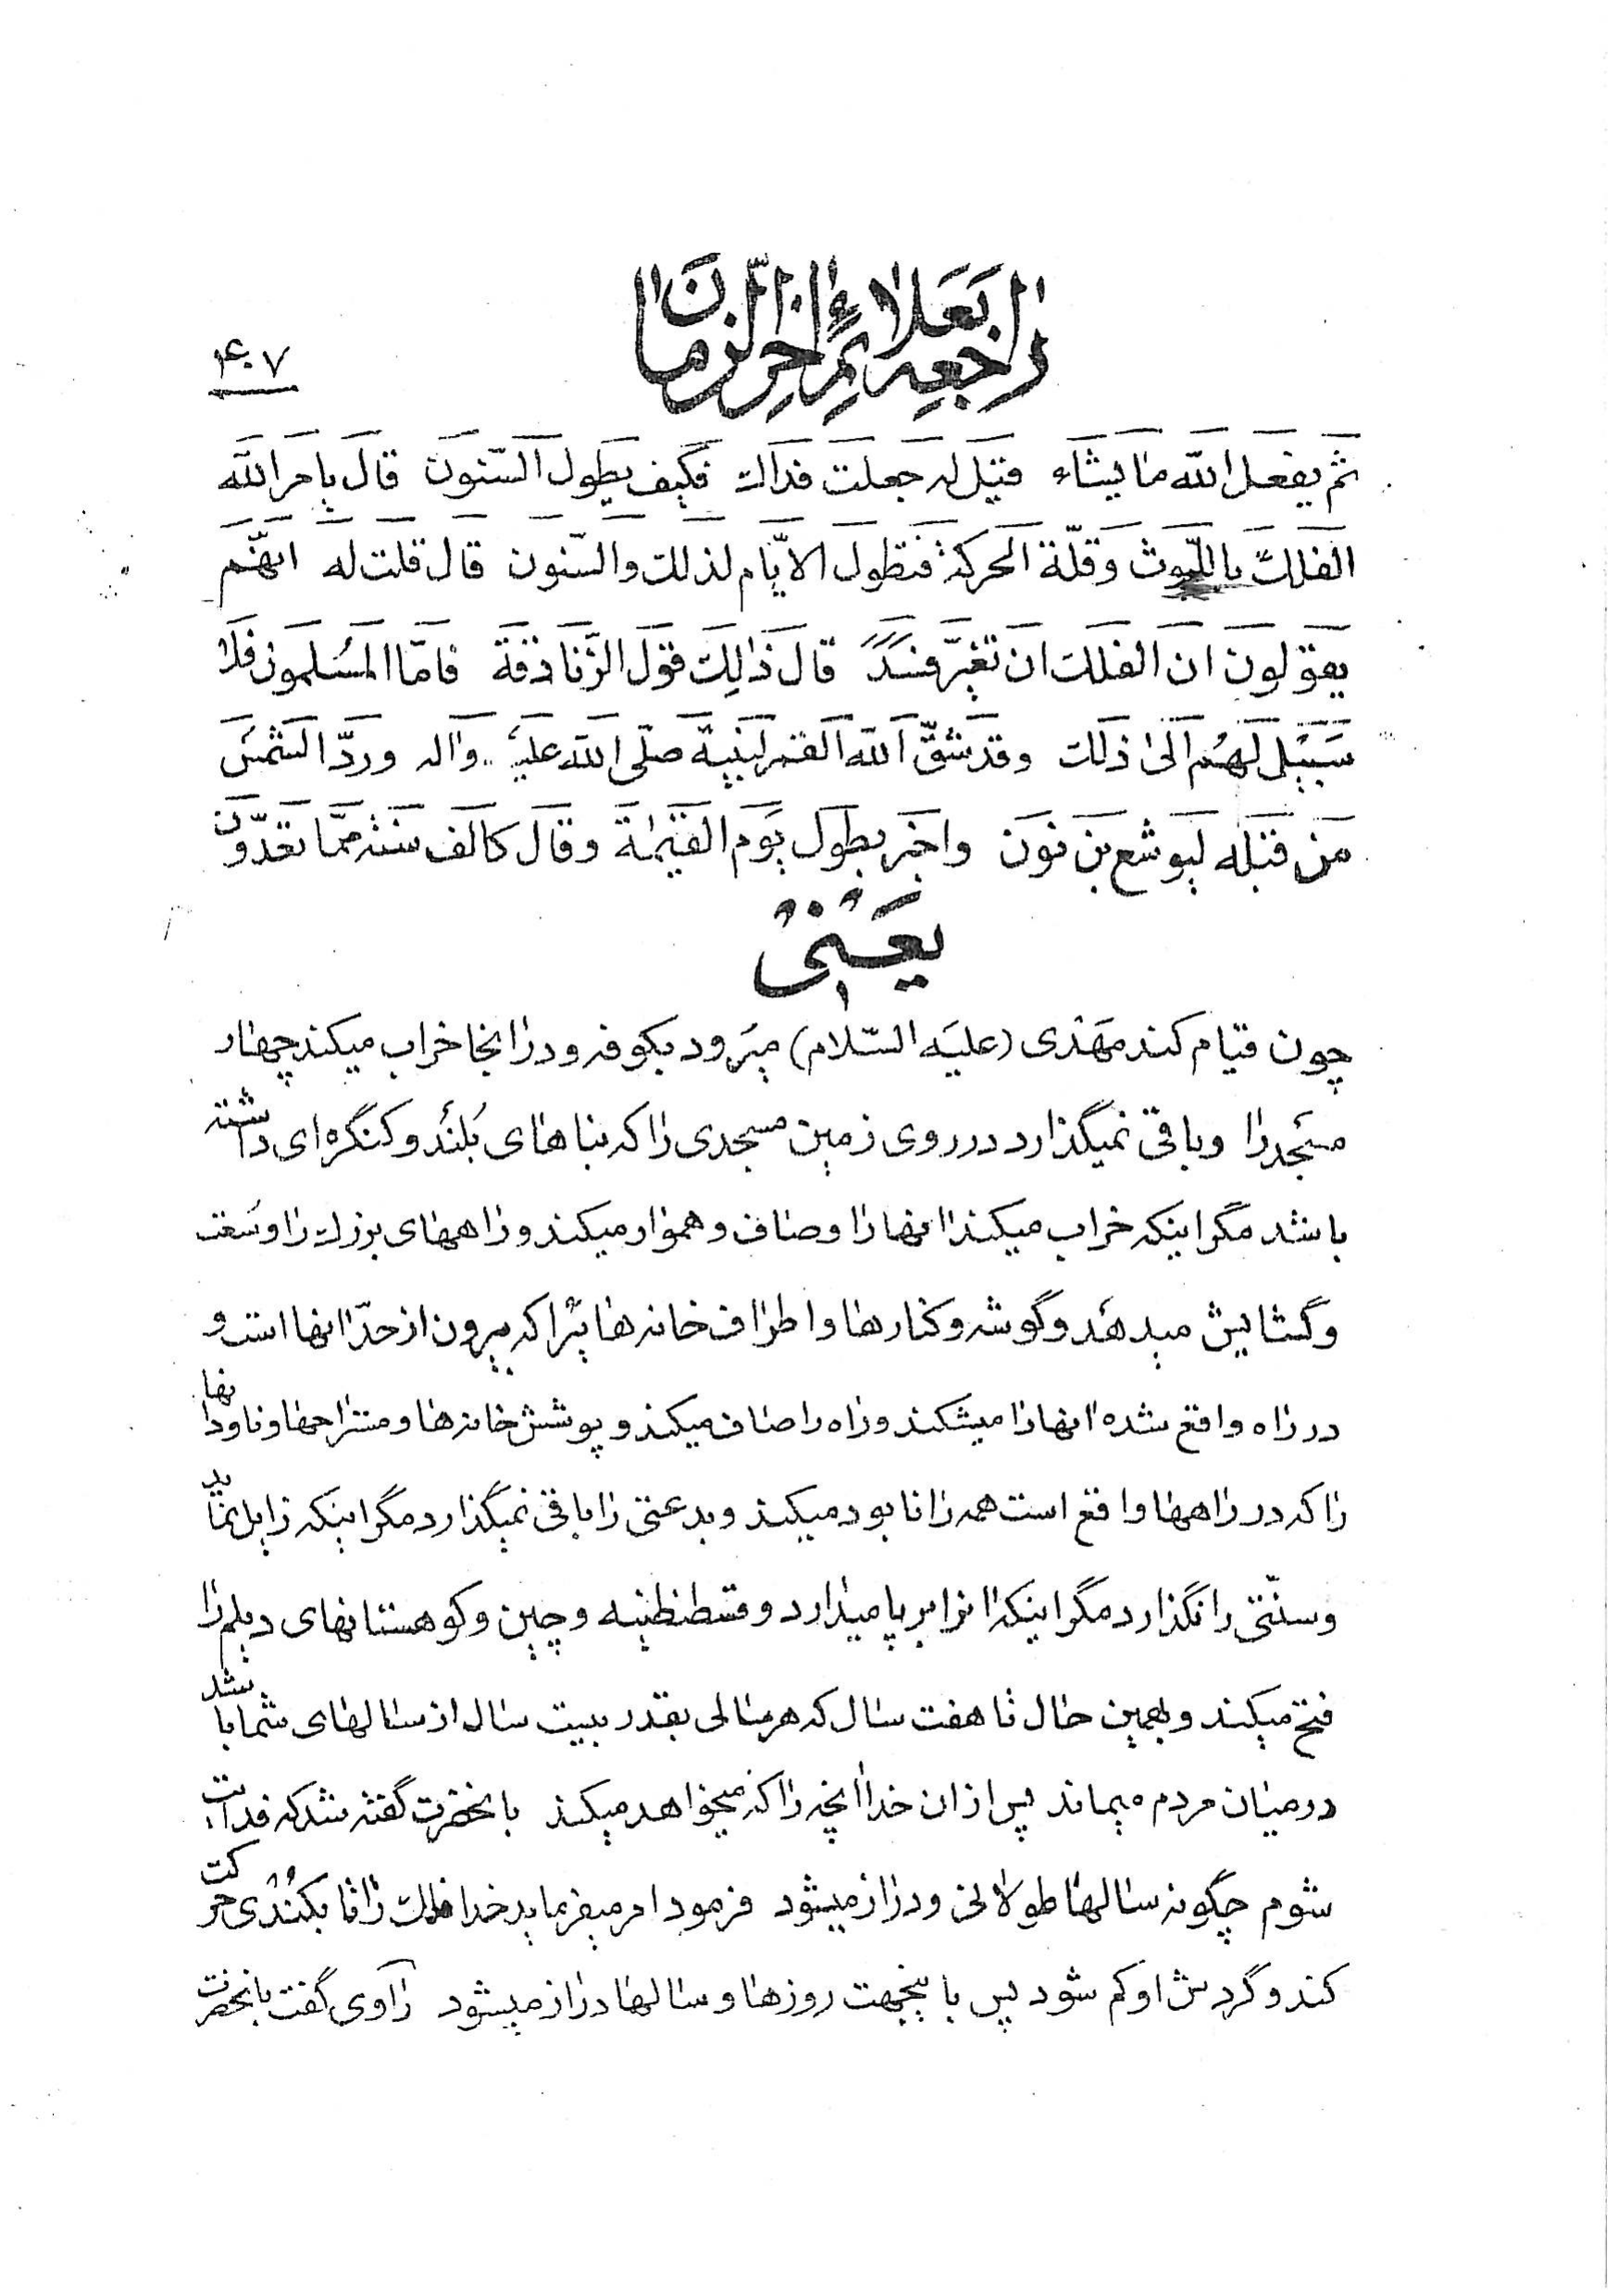 راجعه بعلائم اخر الزمان
۴۰۷
ثم یفعل الله ما یشاء قیل له جعلت فداك فكیف یطول السنون قال یامر الله
الفلك باللبوث وقلّة الحركة فتطول الایّام لذلك والسّنون قال قلت له انهّم
یقولون ان الفلك ان تغیّر فسد قال ذٰلِك قول الزّنادقة فامّا المسلمون فلا
سبیل لهم الی ذلك وقد شقّ الله القمر لنبیه صلّی الله علیه واله وردّ الشمس
من قبله لیوشع بن نون واخبر بطول یوم القیٰمة وقال كالف سنة ممّا تعدّون
یعنی
چون قیام کند مهدی (علیه السّلام) میرود بکوفه ودرانجا خراب میکند چهار
مسجد را وباقی نمیگذارد درروی زمین مسجدی را که بناهای بُلند وکنگره ای داشته
باشد مگر اینکه خراب میکند انها را وصاف وهموار میکند وراههای بزرك را وسعت
وگشایش میدهد وگوشه وکنارها واطراف خانه هائیرا که بیرون از حدّ انها است و
درراه واقع شده انها را میشکند وراه را صاف میکند وپوشش خانه ها ومستراحها وناودانها
را که در راهها واقع است همه را نابود میکند وبدعتی را باقی نمیگذارد مگر اینکه زایل نماید
وسنّتی را نگذارد مگر اینکه انرا برپا میدارد وقسطنطنیه وچین وکوهستانهای دیلم را
فتح میکند وبهمین حال تا هفت سال که هر سالی بقدر بیست سال از سالهای شما باشد
درمیان مردم میماند پس از ان خدا انچه را که میخواهد میکند بانحضرت گفته شد که فدایت
شوم چگونه سالها طولانی ودراز میشود فرمود امر میفرماید خدا فلك را تا بکندی حرکت
کند وگردش او کم شود پس باینجهت روزها وسالها دراز میشود راوی گفت بانحضرت